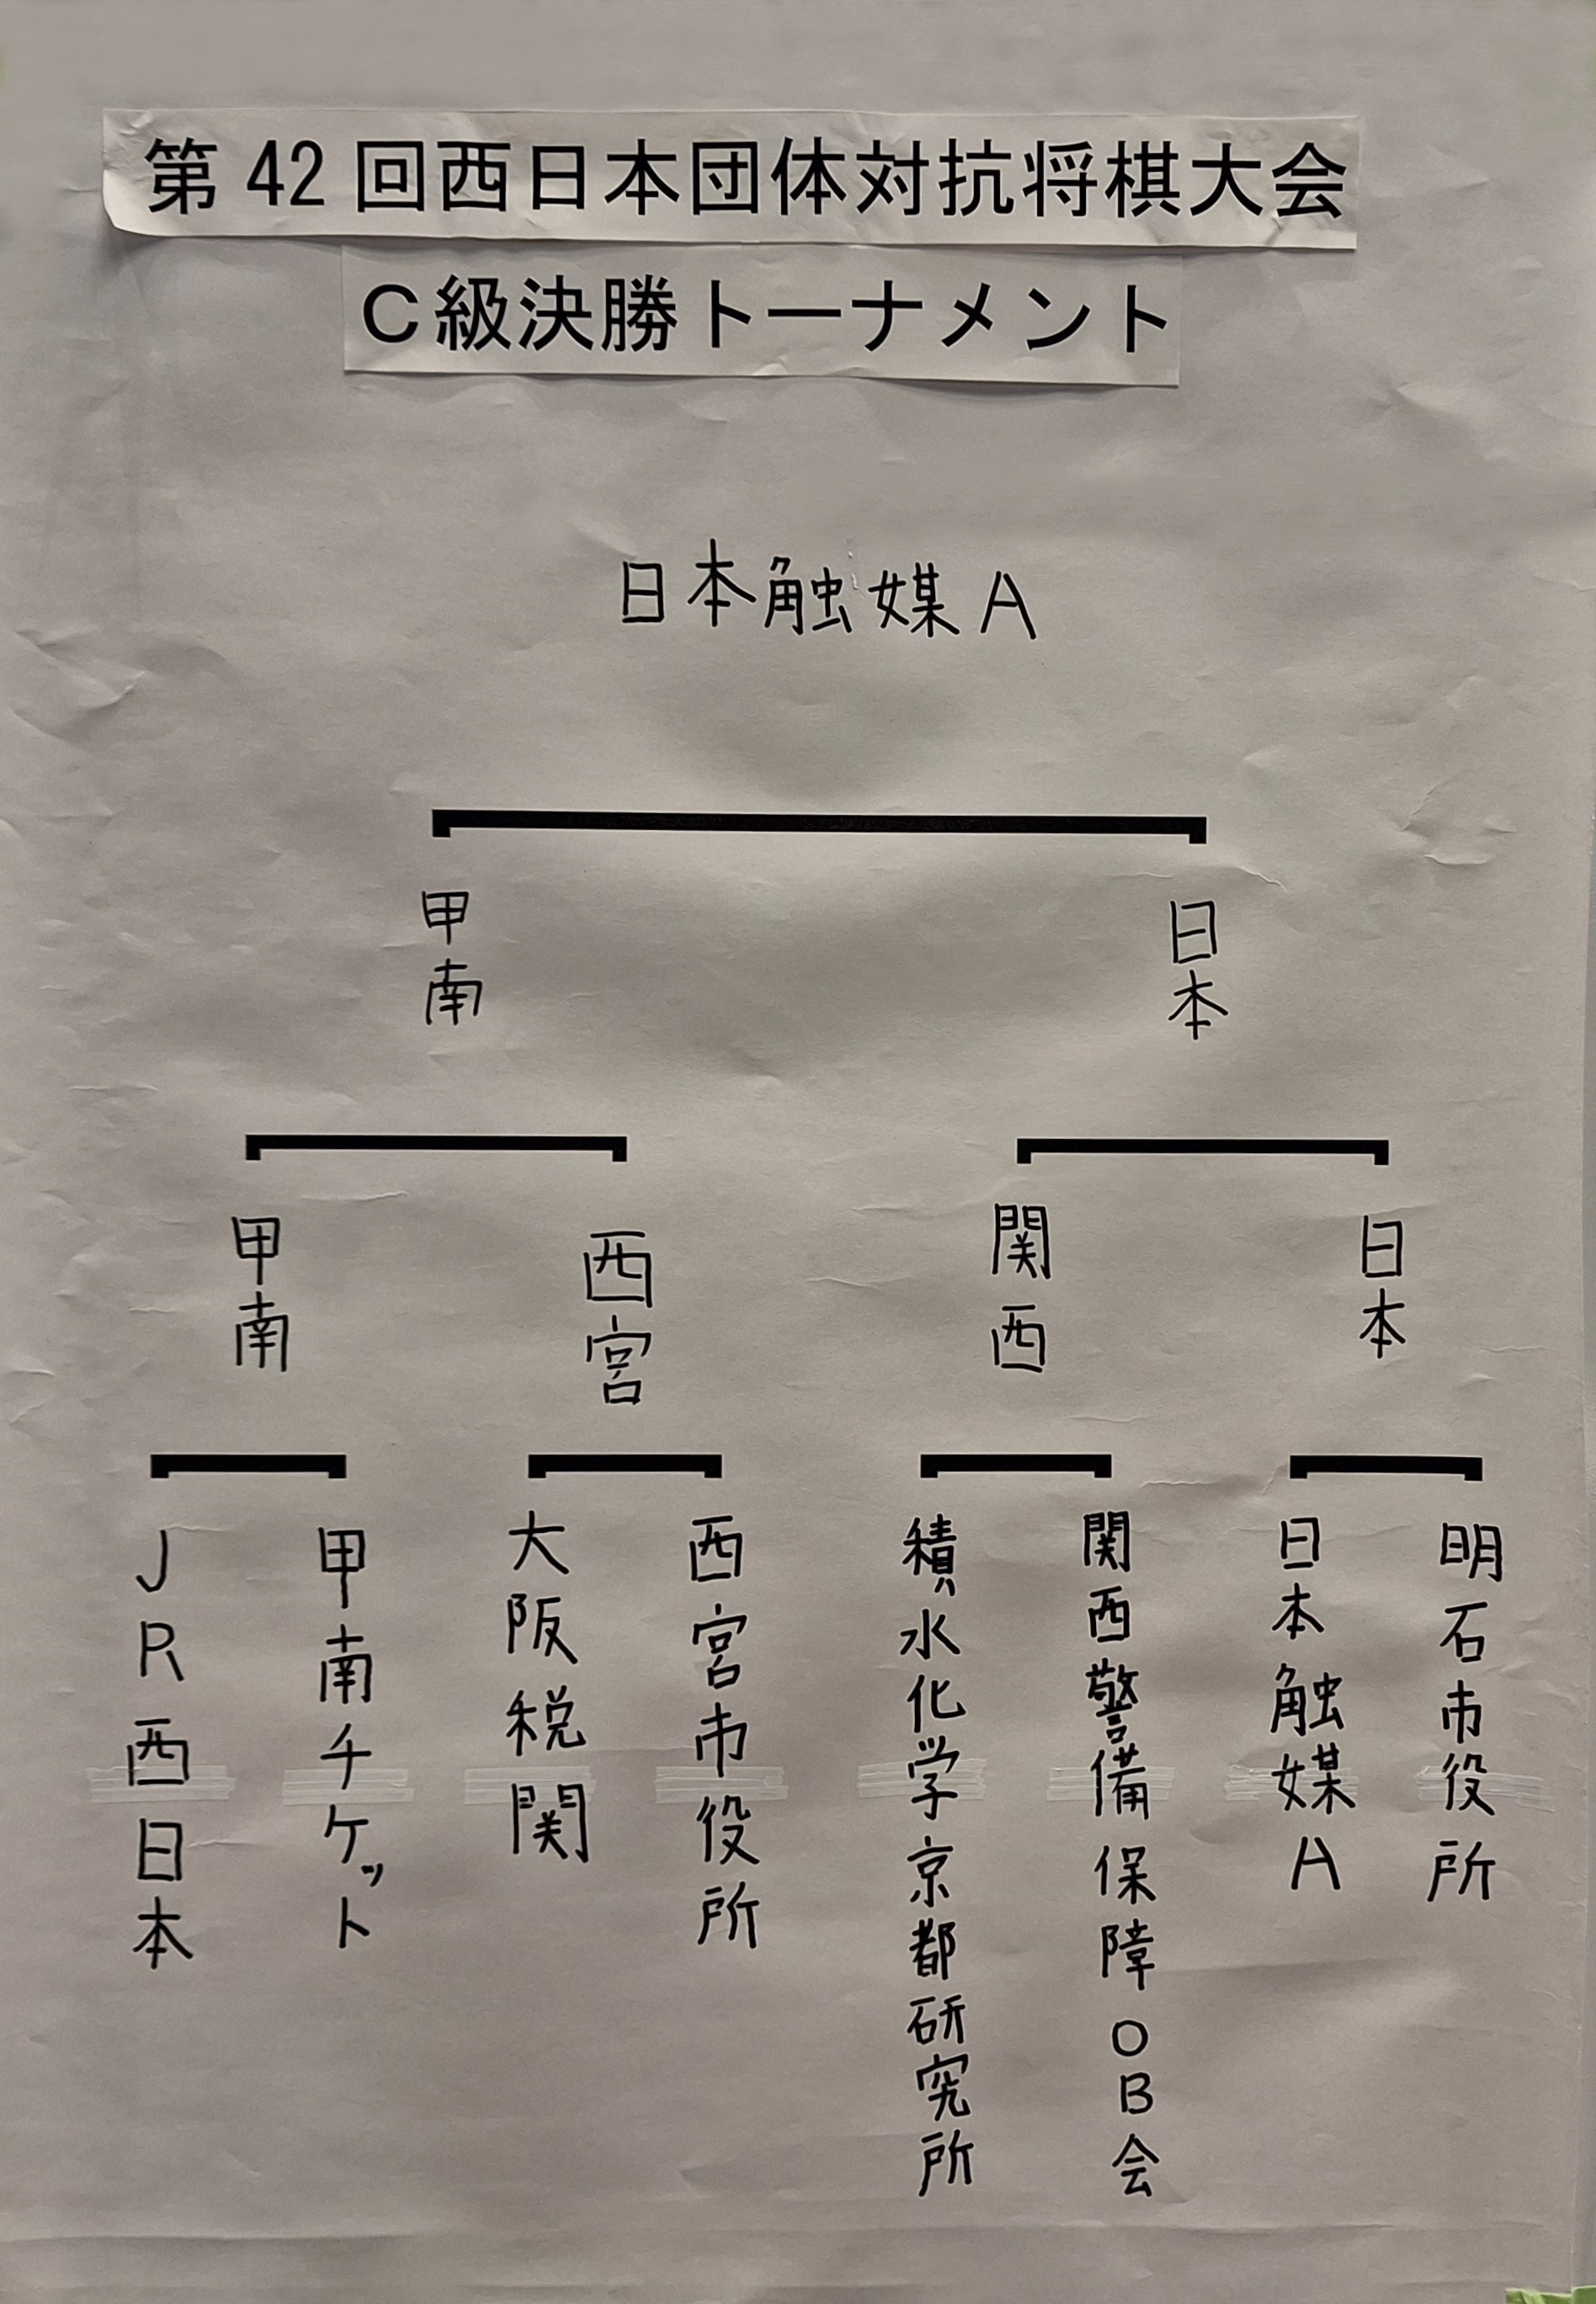 第42回西日本団体対抗将棋大会
C級決勝トーナメント
日本触媒A
甲南
日本
甲南
西宮
関西
日本
JR西日本
甲南チケット
大阪税関
西宮市役所
積水化学京都研究所
関西警備保障OB会
日本触媒A
明石市役所